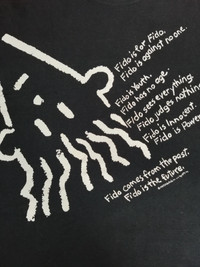 Fido is for Fido.
Fido is against no one.
Fido is Youth.
Fido has no age.
Fido sees everything.
Fido judges nothing
Fido is Innocent.
Fido is Power
Fido comes from the past.
Fido is the future.